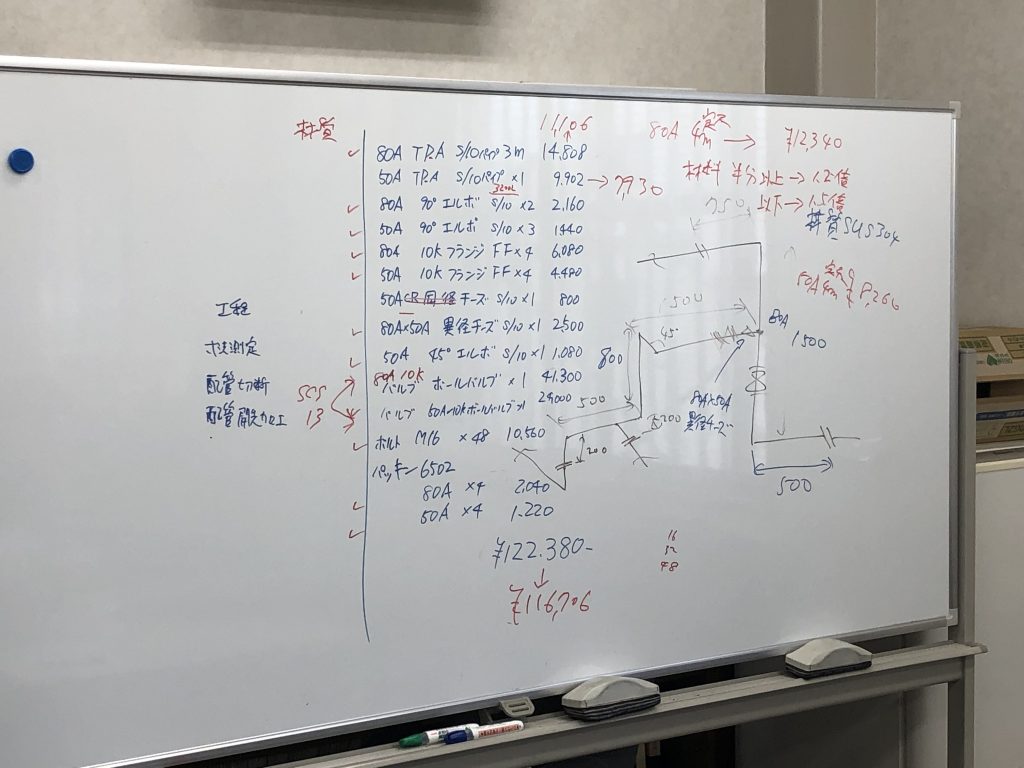 材質
11,106
80A TPA S/10パイプ 3m 14,808
50A TPA S/10パイプ×1 9,902 → 7,930
3200L
80A 90°エルボ S/10×2 2,160
50A 90°エルボ S/10×3 1440
80A 10kフランジ FF×4 6,080
50A 10kフランジ FF×4 4,480
50A 同径チーズ S/10×1 800
80A×50A 異径チーズ S/10×1 2,500
50A 45°エルボ S/10×1 1,080
80A 10k
バルブ ボールバルブ×1 41,300
バルブ 50A 10kボールバルブ×1 29000
ボルト M16 ×48 10,560
パッキン6502
80A ×4 2,040
50A ×4 1,220
¥122,380-
↓
¥116,706
工程
寸法測定
配管切断
配管開先加工
SCS
13
80A 定尺 4m → ¥12,340
材料 半分以上→1.2倍
以下→1.5倍
材質SUS304
50A 定尺 4m ¥8,260
750
1500
45°
80A
1500
800
500
80A×50A
異径チーズ
200
200
500
16
32
48